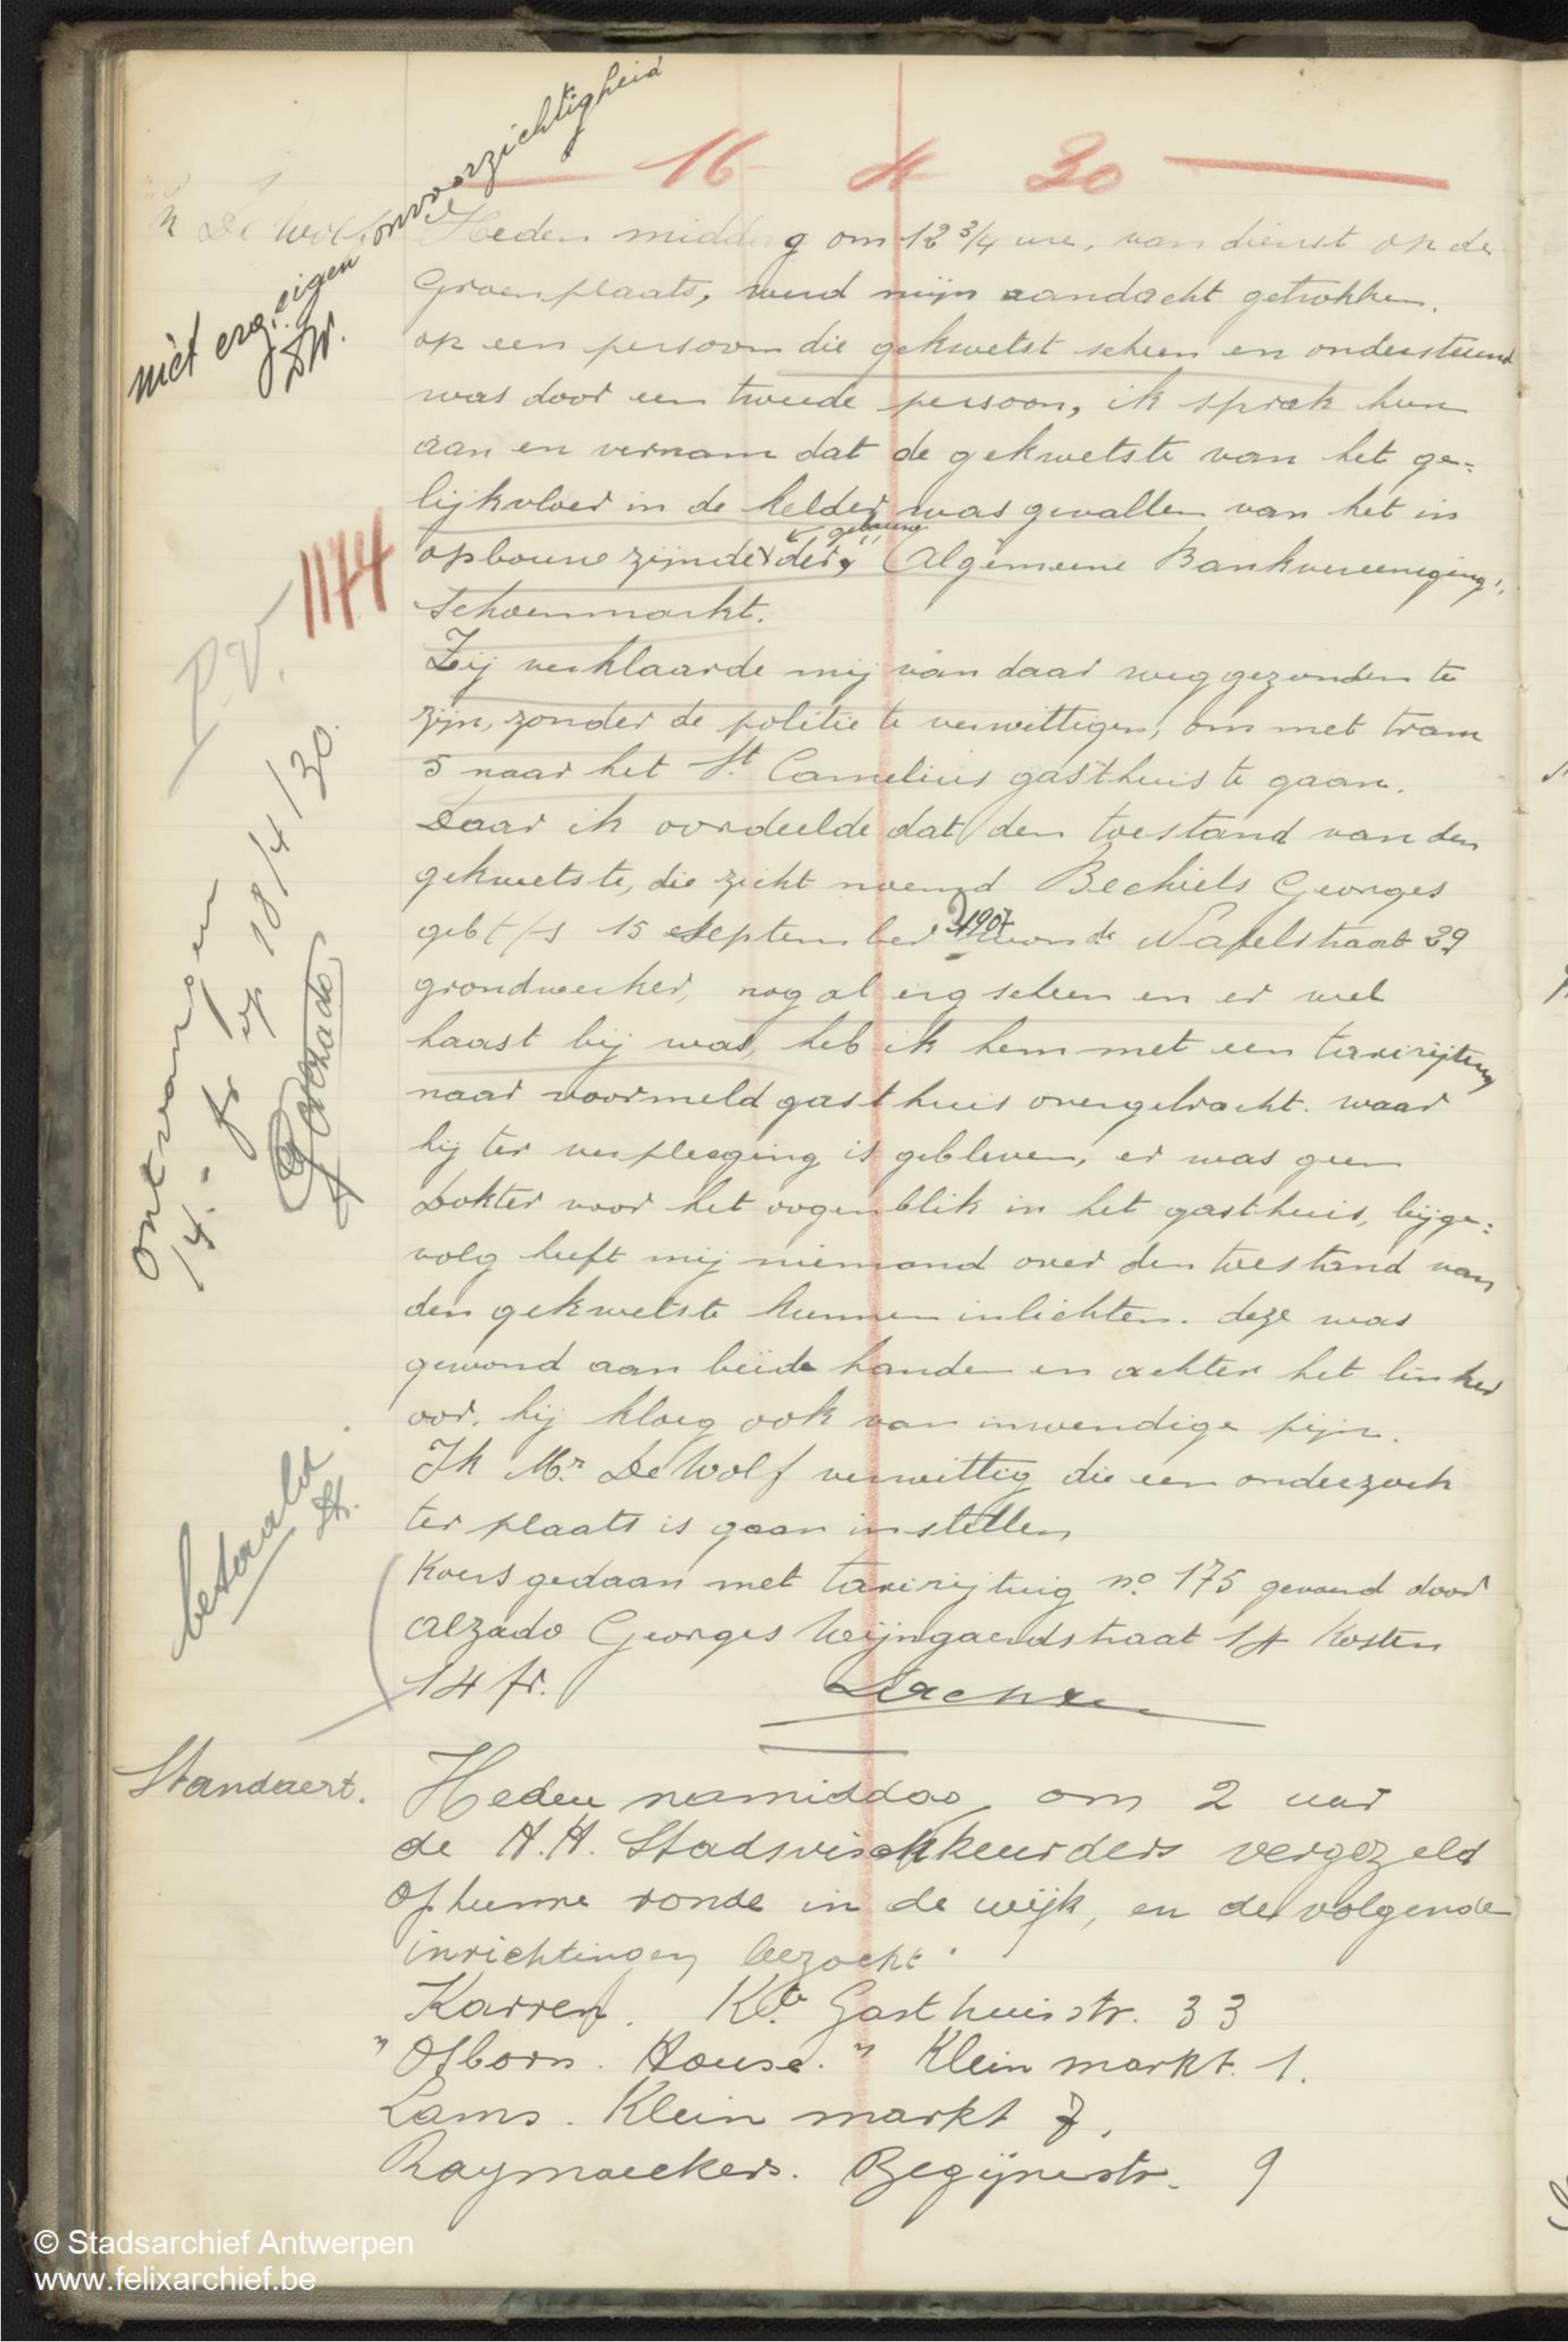 16 4 30
De Wolf
niet erg, eigen onvoorzichtigheid
DW.
Heden middag om 12 3/4 ure, van dienst op de
Groenplaats, werd mijn aandacht getrokken.
op een persoon die gekwetst scheen en ondersteund
was door een tweede persoon, ik sprak hun
aan en vernam dat de gekwetste van het ge=
lijkvloer in de kelder was gevallen van het in
gebouw
opbouw zijnde der, "Algemeene Bankvereeniging",
Schoenmarkt.
1174
P.V.
Zij verklaarde mij van daar weg gezonden te
zijn, zonder de politie te verwittigen, om met tram
5 naar het St. Camelius gasthuis te gaan.
Daar ik oordeelde dat den toestand van den
gekwetste, die zicht noemd Bechiels Georges
geb t/s 15 September 1907 woonde Napelstraat 29
grondwerker, nog al erg scheen en er wel
haast bij was, heb ik hem met een taxirijtuig
naar voormeld gasthuis overgebracht. waar
hij ter verpleeging is gebleven, er was geen
Dokter voor het oogenblik in het gasthuis, bijge=
volg heeft mij niemand over den toestand van
den gekwetste kunnen inlichten. deze was
gewond aan beide handen en achter het linker
oor. hij kloeg ook van inwendige pijn.
Ik Mr. De Wolf verwittig die een onderzoek
ter plaats is gaan instellen
Koers gedaan met taxirijtuig no. 175 gevoerd door
Alzado Georges Wijngaerdstraat 14 Kosten
14 fr.
ontvangen
14.- fr op 18/4/30.
betaald
Standaert.
Heden namiddag om 2 uur
de H.H. Stadsvischkeurders vergezeld
op hunne ronde in de wijk, en de volgende
inrichtingen bezocht.
Karren. Kte Gasthuisstr. 33
"Osborn. House." Klein markt. 1.
Lams. Klein markt 7.
Raymaeckers. Begijnestr. 9
© Stadsarchief Antwerpen
www.felixarchief.be